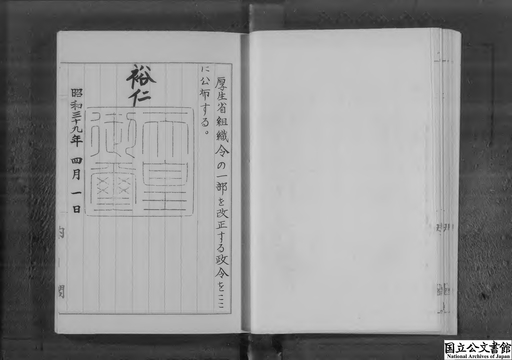 厚生省組織令の一部を改正する政令をここ
に公布する。
裕仁
天皇
御璽
昭和三十九年四月一日
内閣
国立公文書館
National Archives of Japan